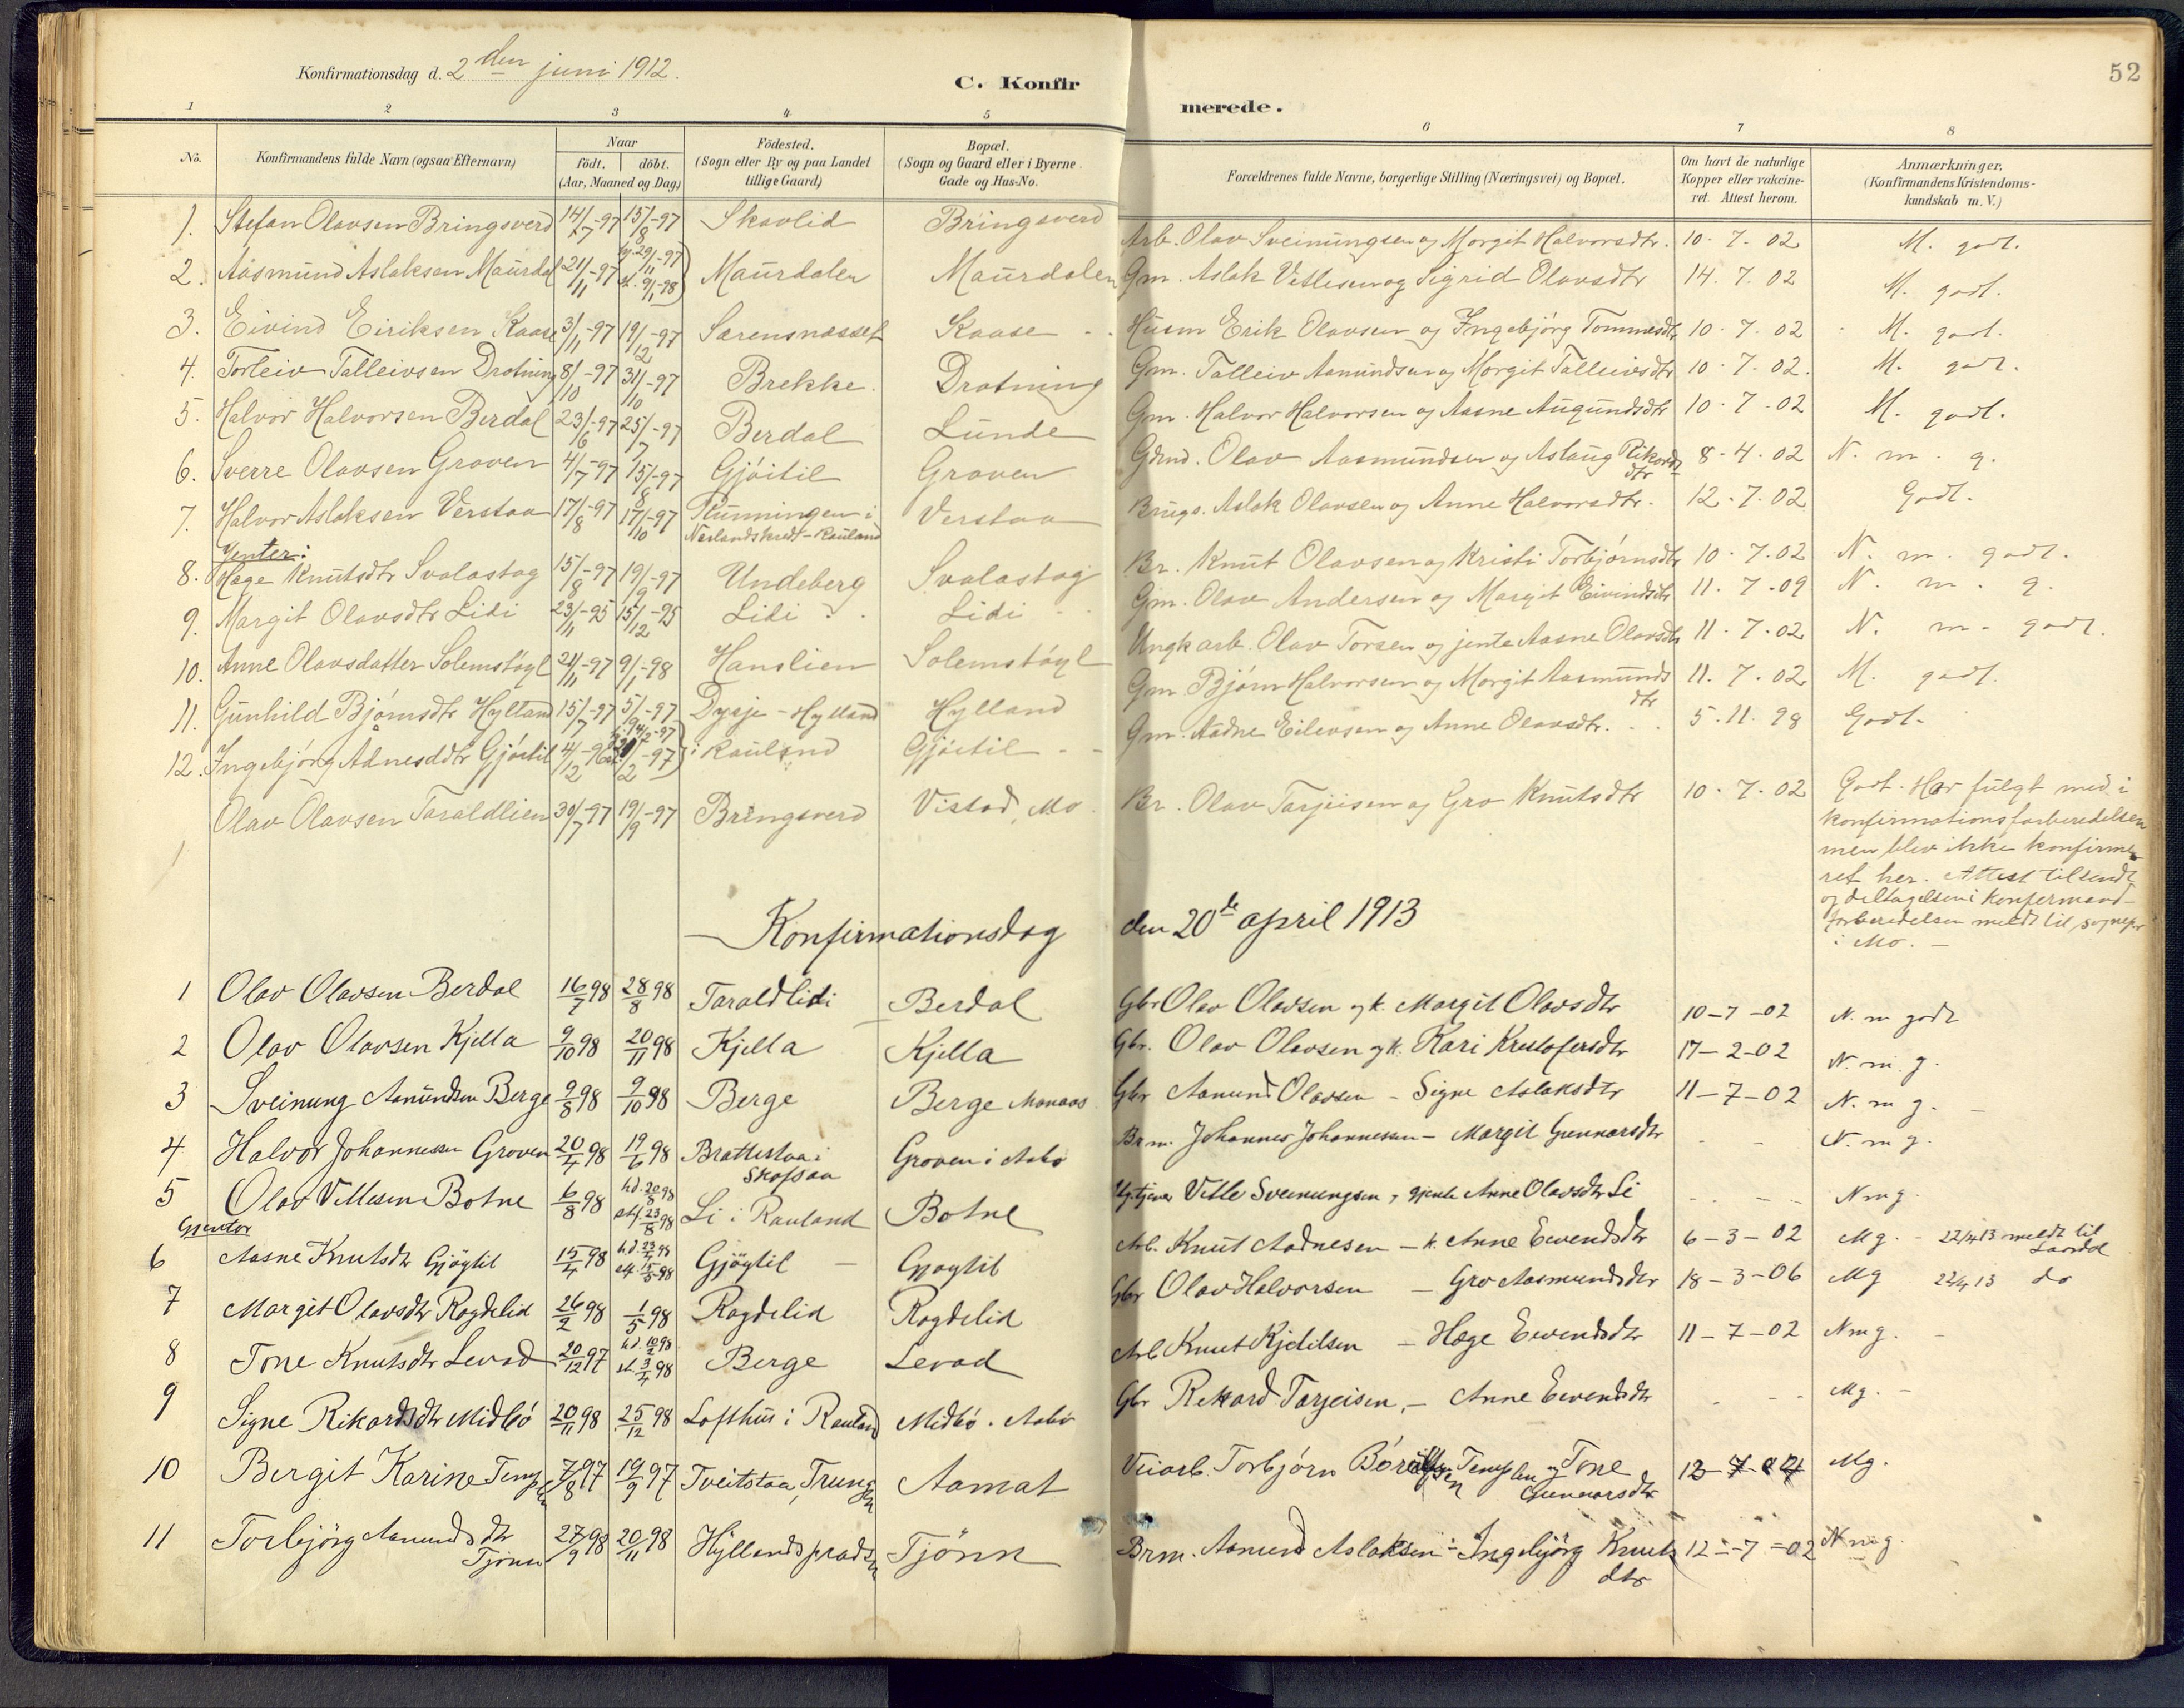 Konfirmationsdag d. 2den juni 1912.
C. Konfirmerede.
52
1 2 3 4 5 6 7 8
No.
Konfirmandens fulde Navn (ogsaa Efternavn)
Naar
födt. döbt.
(Aar, Maaned og Dag)
Födested.
(Sogn eller By og paa Landet
tillige Gaard)
Bopæl.
(Sogn og Gaard eller i Byerne
Gade og Hus-No.
Forældrenes fulde Navne, borgerlige Stilling (Næringsvei) og Bopæl.
Om havt de naturlige
Kopper eller vakcine-
ret. Attest herom.
Anmærkninger.
(Konfirmandens Kristendoms-
kundskab m. V.)
1. Stefan Olavsen Bringsverd 14/7-97 15/8-97 Skavlid Bringsverd Arb. Olav Sveinungsen og Margit Halvorsdtr. 10. 7. 02 M. godt.
2. Aasmund Aslaksen Maurdal 21/11-97 29/11-97 st. 9/1-98 Maurdalen Maurdalen Gm. Aslak Vetlesen og Sigrid Olavsdtr 14. 7. 02 M. godt.
3. Eivind Eiriksen Kaase 3/11-97 19/12-97 Sarensnæsset Kaase Husm Erik Olavsen og Ingebjörg Tommesdtr 10. 7. 02 M. godt.
4. Torleiv Talleivsen Drotning 8/10-97 31/10-97 Brekke Drotning Gm. Talleiv Aamundsen og Margit Talleivsdtr 10. 7. 02. M. godt.
5. Halvor Halvorsen Berdal 23/6-97 25/7-97 Berdal Lunde Gm. Halvor Halvorsen og Aasne Augundsdtr 10. 7. 02 M. godt.
6. Sverre Olavsen Groven 4/7-97 15/8-97 Gjöitil Groven Gdmd. Olav Aasmundsen og Aslaug Rikards
dtr 8. 4. 02 N. m. g.
7. Halvor Aslaksen Verstaa 17/8-97 17/10-97 Runningen i
Næslandskred-Rauland Verstaa Brugs. Aslak Olavsen og Anne Halvorsdtr. 12. 7. 02 Godt.
Jenter:
8. Hæge Knutsdtr Svalastog 15/8-97 19/9-97 Undeberg Svalastog Br. Knut Olavsen og Kristi Torbjörnsdtr 10. 7. 02 N. m. godt.
9. Margit Olavsdtr Lidi 23/11-95 15/12-95 Lidi Lidi Gm. Olav Andersen og Margit Eivindsdtr 11. 7. 09 N. m. g.
10. Anne Olavsdatter Solemstöyl 21/11-97 9/1-98 Hanslien Solemstöyl Ungk arb. Olav Torsen og jente Aasne Olavsdtr 11. 7. 02 N. m. godt.
11. Gunhild Björnsdtr Hylland 15/7-97 5/9-97 Dysje-Hylland Hylland Gm Bjørn Halvorsen og Margit Aasmunds
dtr 11. 7. 02 M. godt.
12. Ingebjörg Ådnesddtr Gjöitil 4/12-96 i Rauland Gjöitil Gm. Aadne Eilevsen og Anne Olavsdtr. 5. 11. 98 Godt.
Olav Olavsen Taraldlien 30/7-97 19/9-97 Bringsverd Vistad, Mo. Br. Olav Tarjeisen og Gro Knutsdtr 10. 7. 02 Godt. Har fulgt med i
konfirmationsforberedelsen
men blev ikke konfirme-
ret her. Attest tilsendt
og deltagelsen i konfirmand-
forberedelsen meldt til sognepr
i Mo. –
Konfirmationsdag den 20de april 1913
1 Olav Olavsen Berdal 16/7 98 28/8 98 Taraldlidi Berdal Gbr Olav Olavsen og k. Margit Olavsdtr 10-7-02 N. m godt
2 Olav Olavsen Kjella 9/10 98 20/11 98 Kjella Kjella Gbr. Olav Olavsen og k. Kari Kristofersdtr 17-2-02 N. m. g.
3 Sveinung Aamundsen Berge 9/8 98 9/10 98 Berge Berge Gbr Aamund Olavsen – Signe Aslaksdtr 11-7-02 N. m g.
4 Halvor Johannessen Groven 20/4 98 19/6 98 Brattestaa i
Skafsaa Groven i Aabø Brm. Johannes Johannessen – Margit Gunnarsdtr N. m g.
5 Olav Vetlesen Botne 6/8 98 hd. 20/8 98
st 23/8 98 Li i Rauland Botne Vetle Sveinungsen, Anne Olavsdtr Li N m g.
Gjentor
6 Aasne Knutsdtr Gjöytil 15/4 98 hd. 23/4 98
st 15/5 98 Gjöytil – Gjöytil Arb. Knut Aadnesen – k. Anne Eivendsdtr 6-3-02 M g. – 22/4 13 meldt til
Laardal
7 Margit Olavsdtr Rogdelid 26/2 98 1/5 98 Rogdelid Rogdelid Gbr Olav Halvorsen – Gro Aasmundsdtr 18-3-06 M g 22/4 13 do
8 Tone Knutsdtr Levad 20/12 97 hd. 10/2 98
st. 3/4 98 Berge Levad Arb Knut Kjetilsen – Hæge Eivendsdtr 11-7-02 N m g.
9 Signe Rikardsdtr Midbö 20/11 98 25/12 98 Lofthus i Rauland Midbö. Aabø Gbr Rikard Tarjeisen, – Anne Eivendsdtr M g. –
10 Bergit Karine Templen 7/8 97 19/9 97 Tveitstaa, Trungen Aamat Veiarb. Torbjørn Templen og Tone
Gunnarsdtr M g.
11 Torbjörg Aamundsdtr
Tjönn 27/9 98 20/11 98 Hyllandspradsen Tjönn Brm. Aamund Aslaksen – Ingebjörg Knuts
dtr 12-7-02 N m g